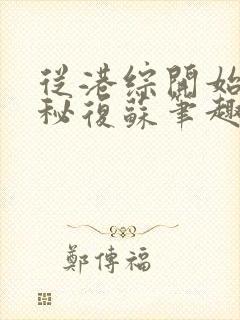 從港綜開始
秘復蘇筆趣
鄭傳福